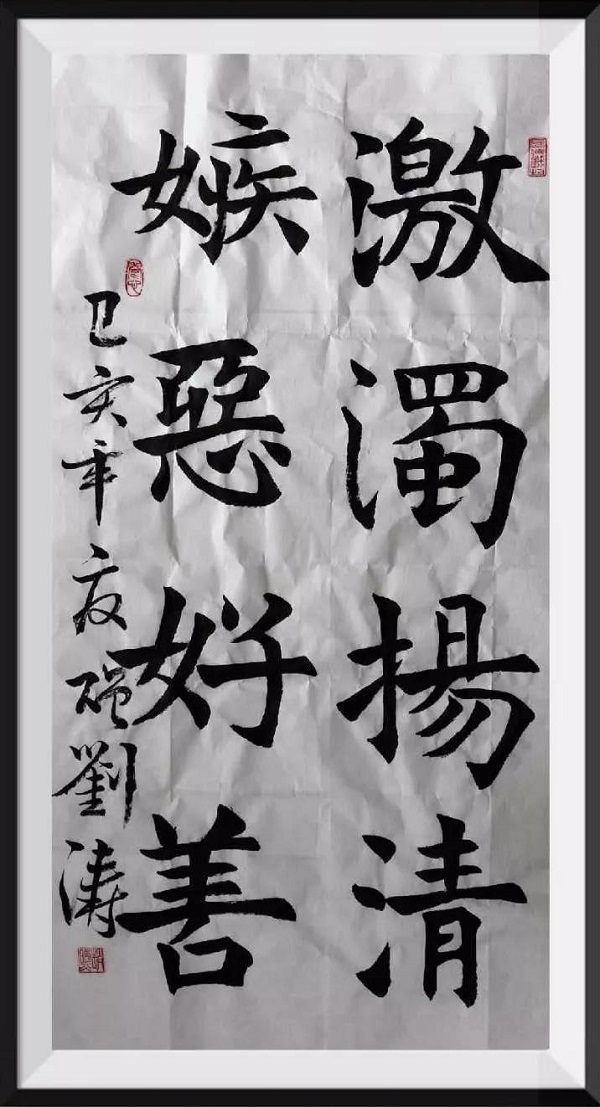 激濁揚清
嫉惡好善
己亥年夏 劉濤